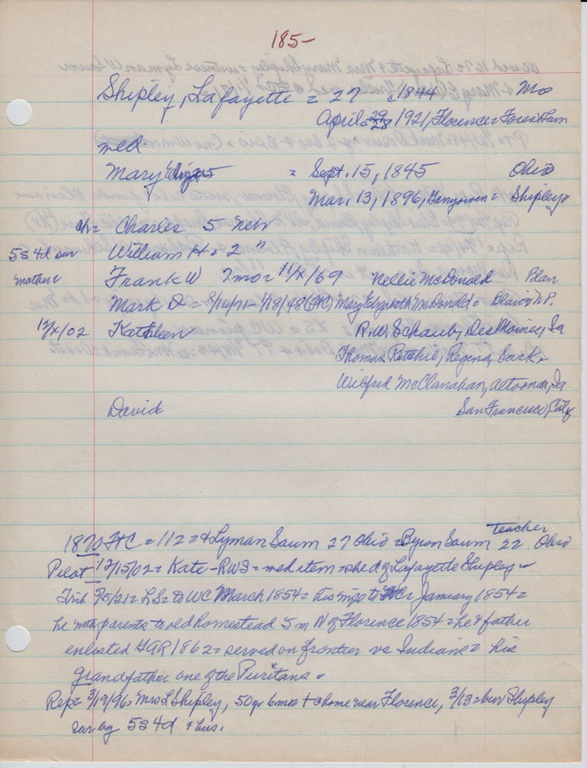 185-
Shipley, Lafayette = 27 1844 Mo
April 29/28 1921, Florence = Forest Lawn
med
Mary 25 = Sept. 15, 1845 Ohio
Mar. 13, 1896, = Shipley
Charles 5 Neb
5s 4d sur William H = 2 "
mother Frank W 7 mo = 11/ /69 Nellie McDonald Blair
Mark D = 8/12/71 - 1/18/48 Mary Elizabeth McDonald = Blair NP.
12/ /02 Kathleen R.W. Schaub, Des Moines, Ia
Thomas Ritchie, Regina, Sask.
Wilfred McClanahan, Altoona, Ia
David San Francisco, Calif
1870 FtC = 112 = + Lyman Saum 27 Ohio = Byron Saum Teacher 22 Ohio
Pilot 12/15/02 = Kate - RWS = med item = sh d of Lafayette Shipley
Trib 5/5/21 = LS = D WC March 1854 = his mpo to January 1854 =
he parents to old homestead 5 m N of Florence 1854 = he & father
enlisted GAR 1862 = served on frontier vs Indians = his
grandfather one of the Puritans.
Rep = 3/19/96 = Mrs L Shipley, 50 yr 6 mos + home near Florence, 3/13 = bur Shipley
5s 4d & hus.